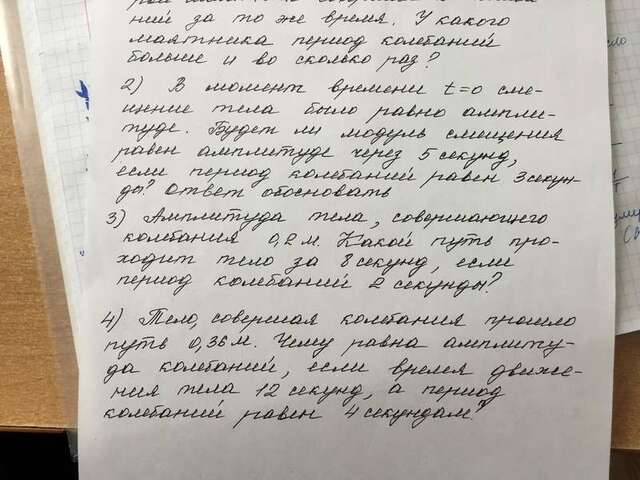 ний за то же время. У какого
маятника период колебаний
больше и во сколько раз?
2) В момент времени t=0 сме-
щение тела было равно ампли-
туде. Будет ли модуль смещения
равен амплитуде через 5 секунд,
если период колебаний равен 3секун-
ды? Ответ обосновать
3) Амплитуда тела, совершающего
колебания 0,2 м. Какой путь про-
ходит тело за 8 секунд, если
период колебаний 2 секунды?
4) Тело, совершая колебания прошло
путь 0,36 м. Чему равна амплиту-
да колебаний, если время движе-
ния тела 12 секунд, а период
колебаний равен 4 секундам?